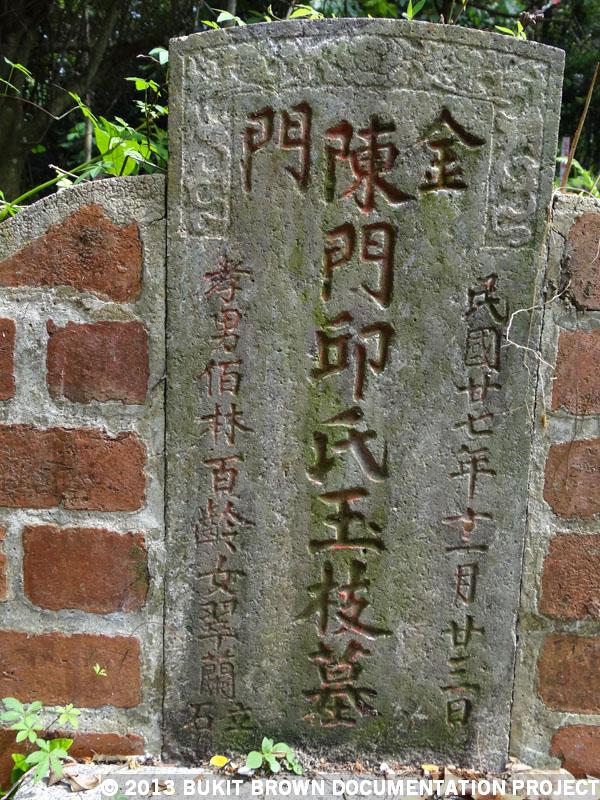 金門
民國廿七年十二月廿三日
陳門邱氏玉枝墓
孝男佰林百齡女翠蘭
立石
© 2013 BUKIT BROWN DOCUMENTATION PROJECT